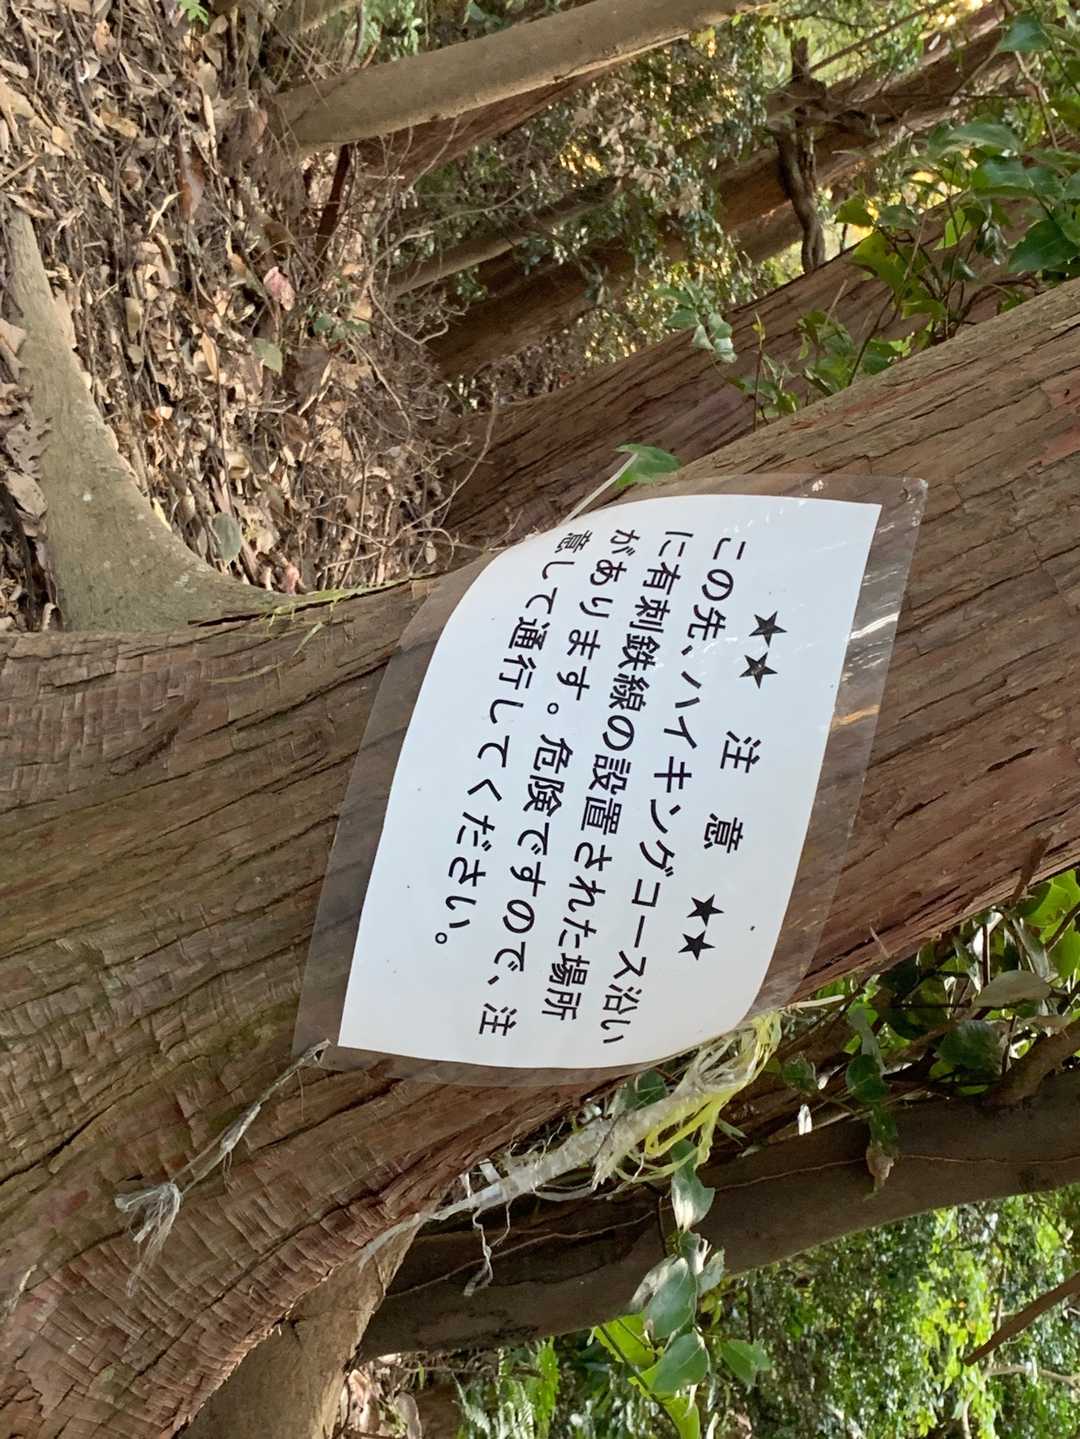 ★★ 注 意 ★★
この先、ハイキングコース沿い
に有刺鉄線の設置された場所
があります。危険ですので、注
意して通行してください。